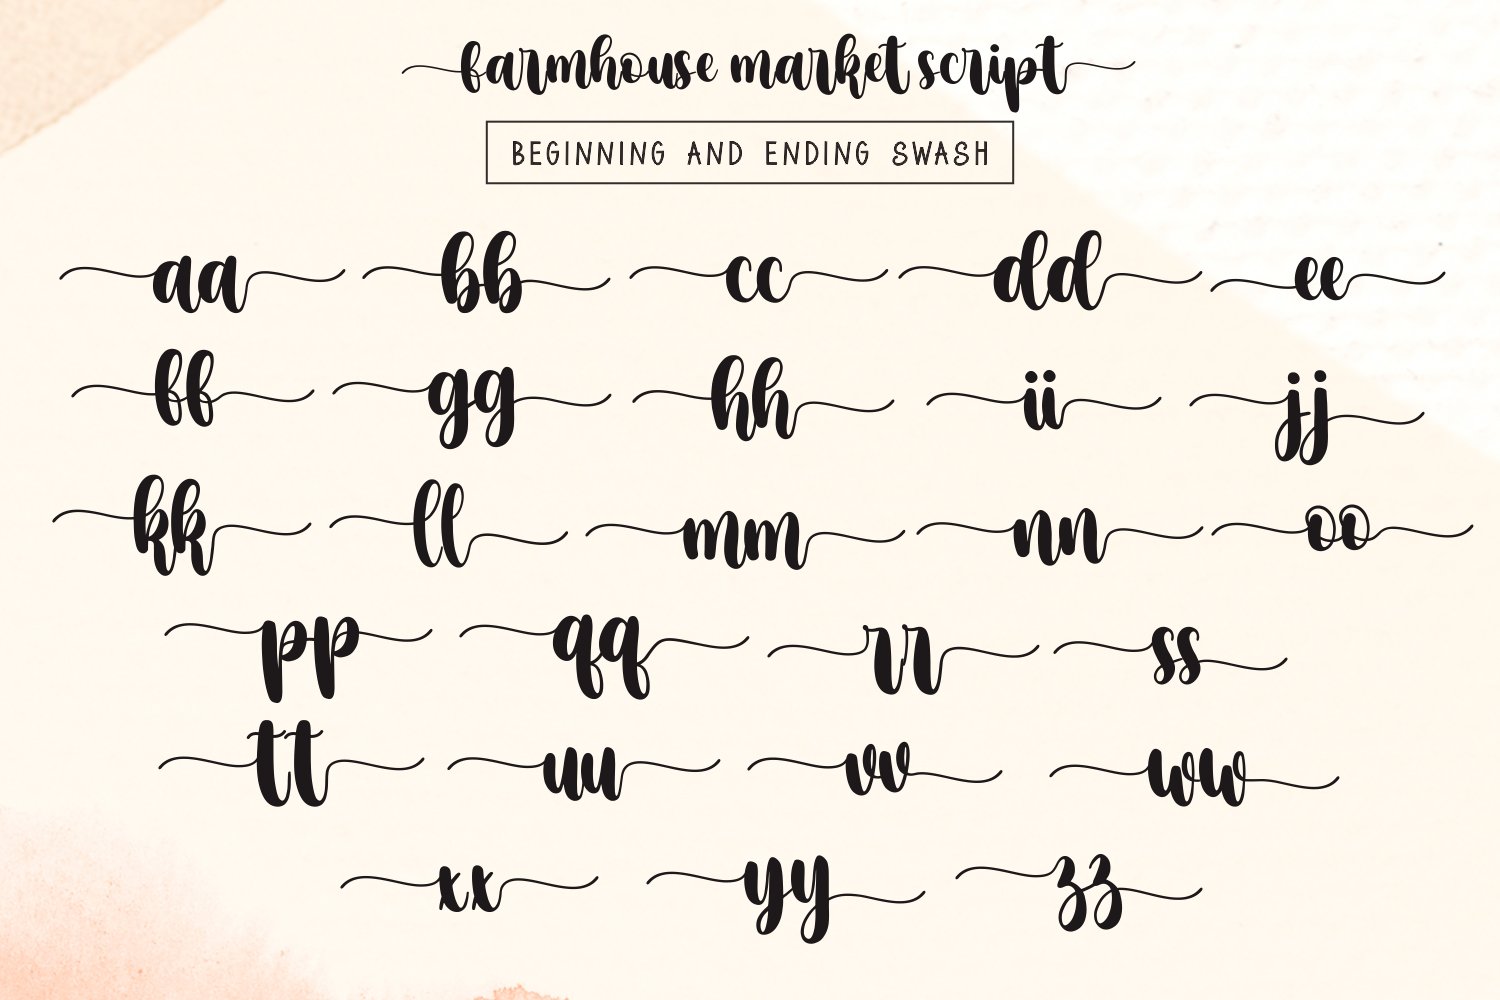 farmhouse market script
BEGINNING AND ENDING SWASH
aa bb cc dd ee
ff gg hh ii jj
kk ll mm nn oo
pp qq rr ss
tt uu vv ww
xx yy zz